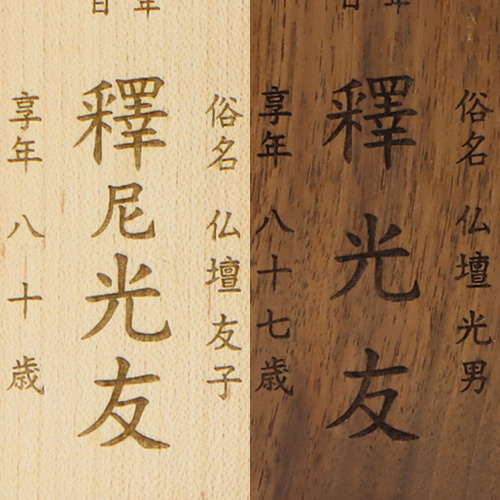 俗名 仏壇光男
年
釋光友
日
享年八十七歳
俗名 仏壇友子
年
釋尼光友
日
享年 八十歳